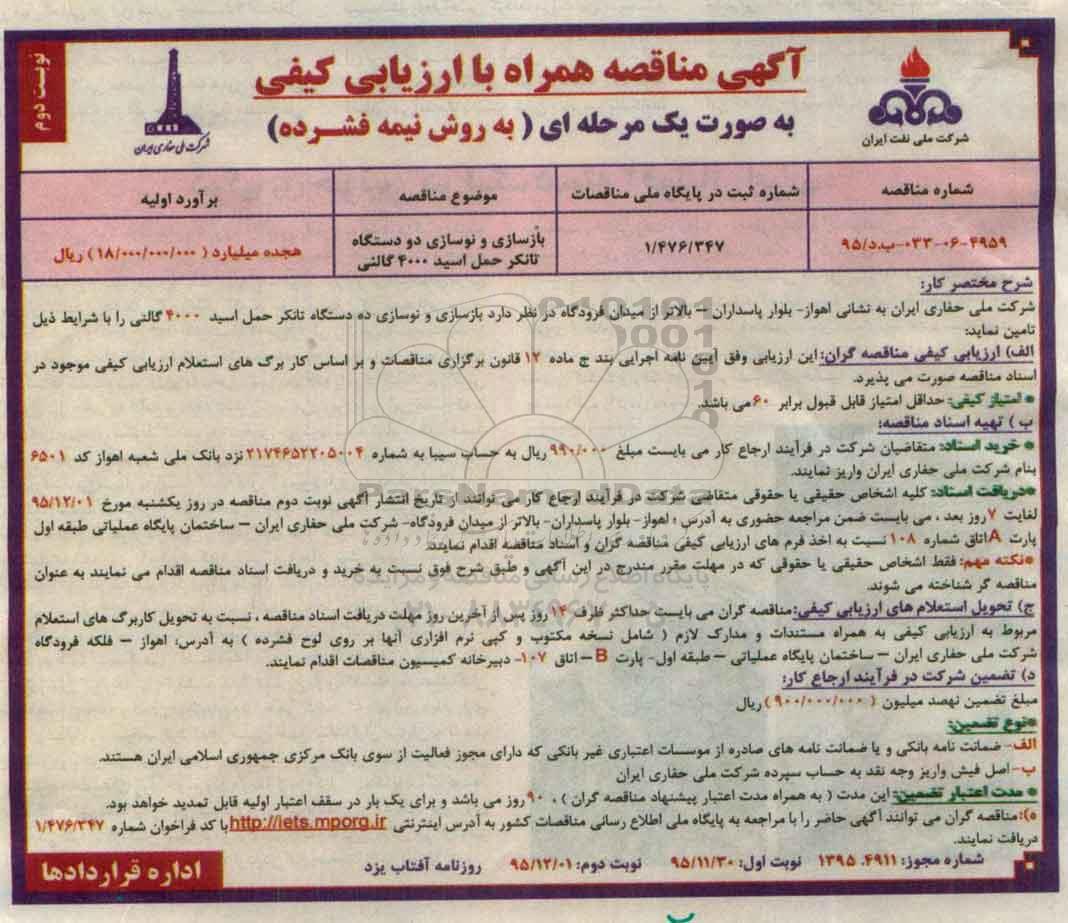 نوبت دوم
آگهی مناقصه همراه با ارزیابی کیفی
به صورت یک مرحله ای ( به روش نیمه فشرده)
شرکت ملی نفت ایران
شرکت ملی حفاری ایران
شماره مناقصه
شماره ثبت در پایگاه ملی مناقصات
موضوع مناقصه
برآورد اولیه
۴۹۵۹-۰۶-۰۳۳-ب.د/۹۵
۱/۴۷۶/۳۴۷
بازسازی و نوسازی دو دستگاه
تانکر حمل اسید ۴۰۰۰ گالنی
هجده میلیارد ( ۱۸/۰۰۰/۰۰۰/۰۰۰ ) ریال
شرح مختصر کار:
شرکت ملی حفاری ایران به نشانی اهواز- بلوار پاسداران – بالاتر از میدان فرودگاه در نظر دارد بازسازی و نوسازی ده دستگاه تانکر حمل اسید ۴۰۰۰ گالنی را با شرایط ذیل
تامین نماید:
الف) ارزیابی کیفی مناقصه گران: این ارزیابی وفق آیین نامه اجرایی بند ج ماده ۱۲ قانون برگزاری مناقصات و بر اساس کار برگ های استعلام ارزیابی کیفی موجود در
اسناد مناقصه صورت می پذیرد.
* امتیاز کیفی: حداقل امتیاز قابل قبول برابر ۶۰ می باشد.
ب ) تهیه اسناد مناقصه:
* خرید اسناد: متقاضیان شرکت در فرآیند ارجاع کار می بایست مبلغ ۹۹۰/۰۰۰ ریال به حساب سیبا به شماره ۲۱۷۴۶۵۲۲۰۵۰۰۴ نزد بانک ملی شعبه اهواز کد ۶۵۰۱
بنام شرکت ملی حفاری ایران واریز نمایند.
*دریافت اسناد: کلیه اشخاص حقیقی یا حقوقی متقاضی شرکت در فرآیند ارجاع کار می توانند از تاریخ انتشار آگهی نوبت دوم مناقصه در روز یکشنبه مورخ ۹۵/۱۲/۰۱
لغایت ۷ روز بعد ، می بایست ضمن مراجعه حضوری به آدرس : اهواز- بلوار پاسداران- بالاتر از میدان فرودگاه- شرکت ملی حفاری ایران – ساختمان پایگاه عملیاتی طبقه اول
پارت A اتاق شماره ۱۰۸ نسبت به اخذ فرم های ارزیابی کیفی مناقصه گران و اسناد مناقصه اقدام نمایند.
*نکته مهم: فقط اشخاص حقیقی یا حقوقی که در مهلت مقرر مندرج در این آگهی و طبق شرح فوق نسبت به خرید و دریافت اسناد مناقصه اقدام می نمایند به عنوان
مناقصه گر شناخته می شوند.
ج) تحویل استعلام های ارزیابی کیفی: مناقصه گران می بایست حداکثر ظرف ۱۴ روز پس از آخرین روز مهلت دریافت اسناد مناقصه ، نسبت به تحویل کاربرگ های استعلام
مربوط به ارزیابی کیفی به همراه مستندات و مدارک لازم ( شامل نسخه مکتوب و کپی نرم افزاری آنها بر روی لوح فشرده ) به آدرس: اهواز – فلکه فرودگاه
شرکت ملی حفاری ایران – ساختمان پایگاه عملیاتی – طبقه اول- پارت B – اتاق ۱۰۷- دبیرخانه کمیسیون مناقصات اقدام نمایند.
د) تضمین شرکت در فرآیند ارجاع کار:
مبلغ تضمین نهصد میلیون ( ۹۰۰/۰۰۰/۰۰۰ ) ریال
*نوع تضمین:
الف- ضمانت نامه بانکی و یا ضمانت نامه های صادره از موسسات اعتباری غیر بانکی که دارای مجوز فعالیت از سوی بانک مرکزی جمهوری اسلامی ایران هستند.
ب- اصل فیش واریز وجه نقد به حساب سپرده شرکت ملی حفاری ایران
* مدت اعتبار تضمین: این مدت ( به همراه مدت اعتبار پیشنهاد مناقصه گران ) ، ۹۰ روز می باشد و برای یک بار در سقف اعتبار اولیه قابل تمدید خواهد بود.
ه): مناقصه گران می توانند آگهی حاضر را با مراجعه به پایگاه ملی اطلاع رسانی مناقصات کشور به آدرس اینترنتی http://iets.mporg.ir با کد فراخوان شماره ۱/۴۷۶/۳۴۷
دریافت نمایند.
شماره مجوز: ۴۹۱۱. ۱۳۹۵ نوبت اول: ۹۵/۱۱/۳۰ نوبت دوم: ۹۵/۱۲/۰۱ روزنامه آفتاب یزد
اداره قراردادها
ParsNamadData
پایگاه اطلاع رسانی مناقصه و مزایده